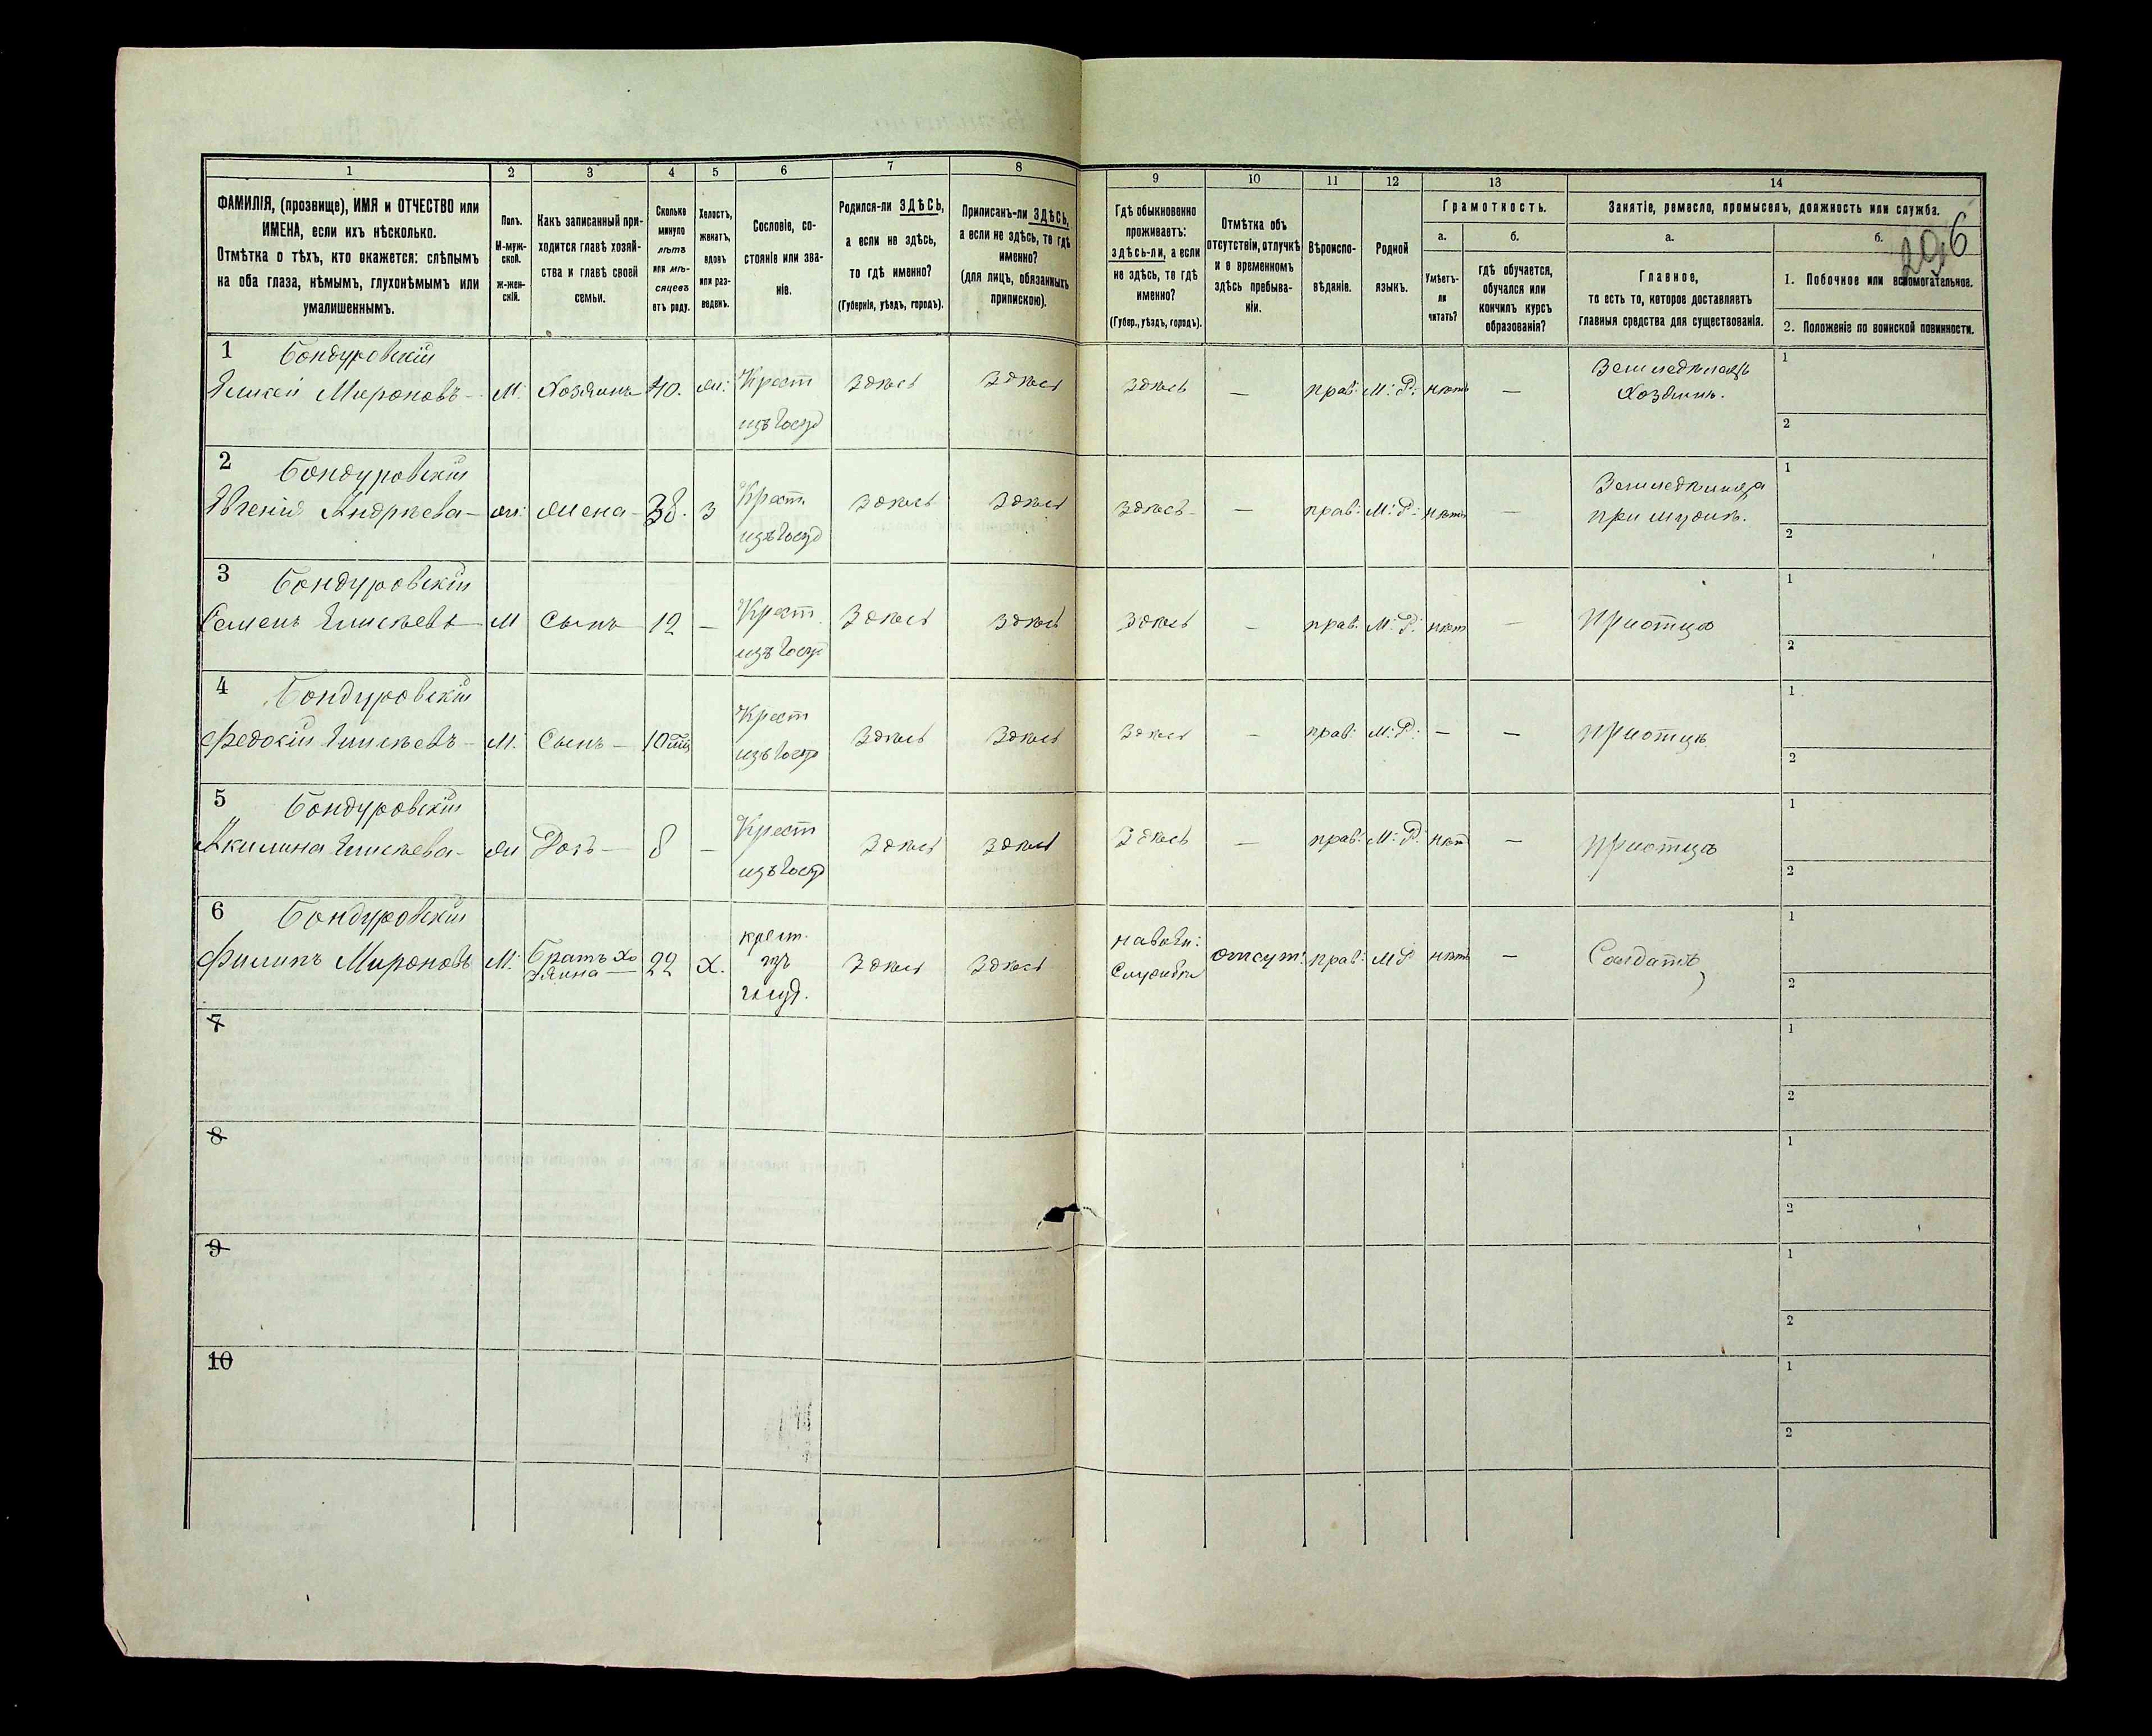 296
1 2 3 4 5 6 7 8 9 10 11 12 13 14
ФАМИЛІЯ, (прозвище), ИМЯ и ОТЧЕСТВО или
ИМЕНА, если ихъ нѣсколько.
Отмѣтка о тѣхъ, кто окажется: слѣпымъ
на оба глаза, нѣмымъ, глухонѣмымъ или
умалишеннымъ.
Полъ.
М-муж-
ской.
Ж-жен-
скій.
Какъ записанный при-
ходится главѣ хозяй-
ства и главѣ своей
семьи.
Сколько
минуло
лѣтъ
или мѣ-
сяцевъ
отъ роду.
Холостъ,
женатъ,
вдовъ
или раз-
веденъ.
Сословіе, со-
стояніе или зва-
ніе.
Родился-ли ЗДѢСЬ,
а если не здѣсь,
то гдѣ именно?
(Губернія, уѣздъ, городъ).
Приписанъ-ли ЗДѢСЬ,
а если не здѣсь, то гдѣ
именно?
(для лицъ, обязанныхъ
припискою).
Гдѣ обыкновенно
проживаетъ:
здѣсь-ли, а если
не здѣсь, то гдѣ
именно?
(Губер., уѣздъ, городъ).
Отмѣтка объ
отсутствіи, отлучкѣ
и о временномъ
здѣсь пребыва-
ніи.
Вѣроиспо-
вѣданіе.
Родной
языкъ.
Грамотность.
а.
Умѣетъ-
ли
читать?
б.
гдѣ обучается,
обучался или
кончилъ курсъ
образованія?
Занятіе, ремесло, промыселъ, должность или служба.
а.
Главное,
то есть то, которое доставляетъ
главныя средства для существованія.
б.
1. Побочное или вспомогательное.
2. Положеніе по воинской повинности.
1 Бондуровскій
Елисей Мироновъ – М: Хозяинъ 40. ж: Крест Здѣсь Здѣсь Здѣсь — прав: М: Р: нѣтъ — Земледѣлецъ 1
изъ Госуд Хозяинъ. 2
2 Бондуровскій
Евгенія Андреева – ж: Жена – 38. З Крест Здѣсь Здѣсь Здѣсь – — прав: М: Р: нѣтъ — Земледѣлица 1
изъ Госуд при мужѣ. 2
3 Бондуровскій
Семенъ Елисѣевъ – М Сынъ 12 – Крест Здѣсь Здѣсь Здѣсь – прав: М: Р: нѣтъ – При отцѣ 1
изъ Госуд 2
4 Бондуровскій
Федосій Елисѣевъ – М: Сынъ – 10 Крест Здѣсь Здѣсь Здѣсь – прав: М: Р: – – При отцѣ 1
изъ Госуд 2
5 Бондуровскій
Акилина Елисѣева – ж Дочь – 8 – Крест Здѣсь Здѣсь Здѣсь — прав: М: Р: нѣтъ — При отцѣ 1
изъ Госуд 2
6 Бондуровскій
Филипъ Мироновъ М: Братъ Хо Крест. Здѣсь Здѣсь отсут: прав: М Р нѣтъ — Солдатъ 1
зяина — 22 Х. изъ Службѣ 2
Госуд.
7 1
2
8 1
2
9 1
2
10 1
2